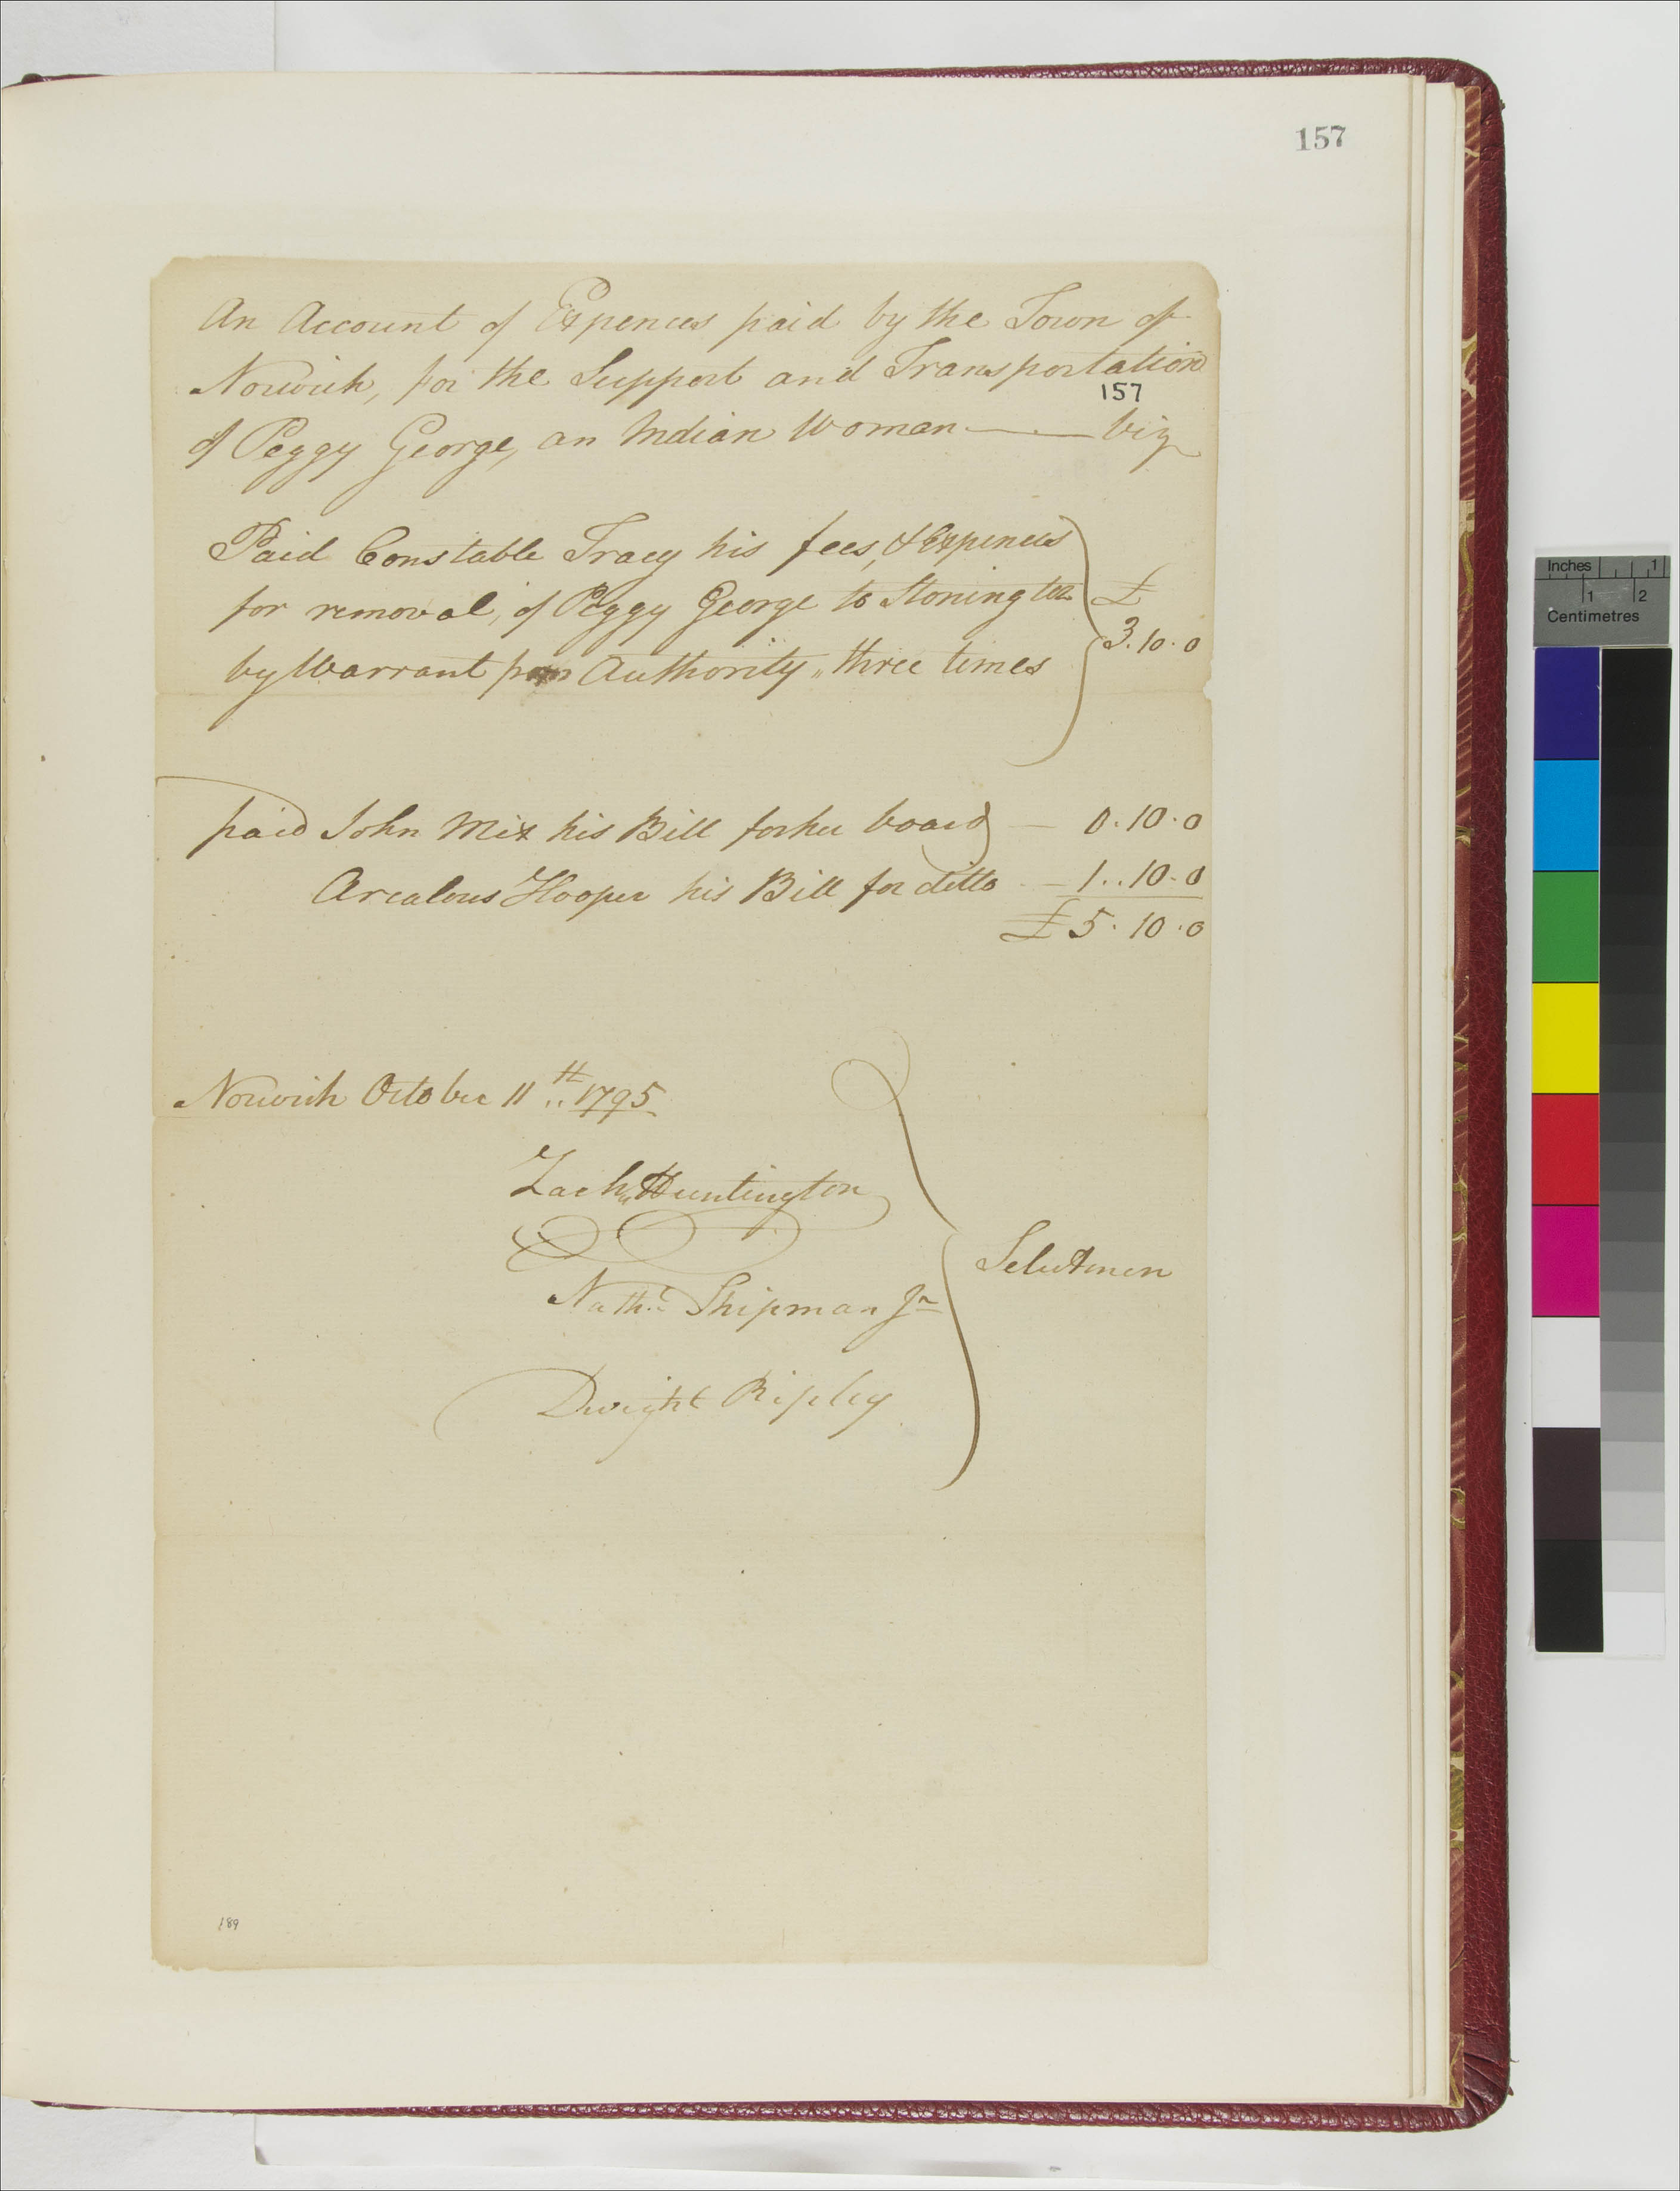 157
An Account of Expences paid by the Town of
Norwich, for the Support and Transportation
157
of Peggy George, an Indian Woman — viz
Paid Constable Tracy his fees, & Expences
for removal, of Peggy George to Stonington £
by Warrant from Authority, three times 3.10.0
paid John Mix his Bill for her board — 0.10.0
Arealous Hooper his Bill for ditto — 1..10.0
£5.10.0
Norwich October 11th.. 1795.
Zach Huntington
Nathl Shipman Jr
Selectmen
Dwight Ripley
189
Inches 1
1 2
Centimetres